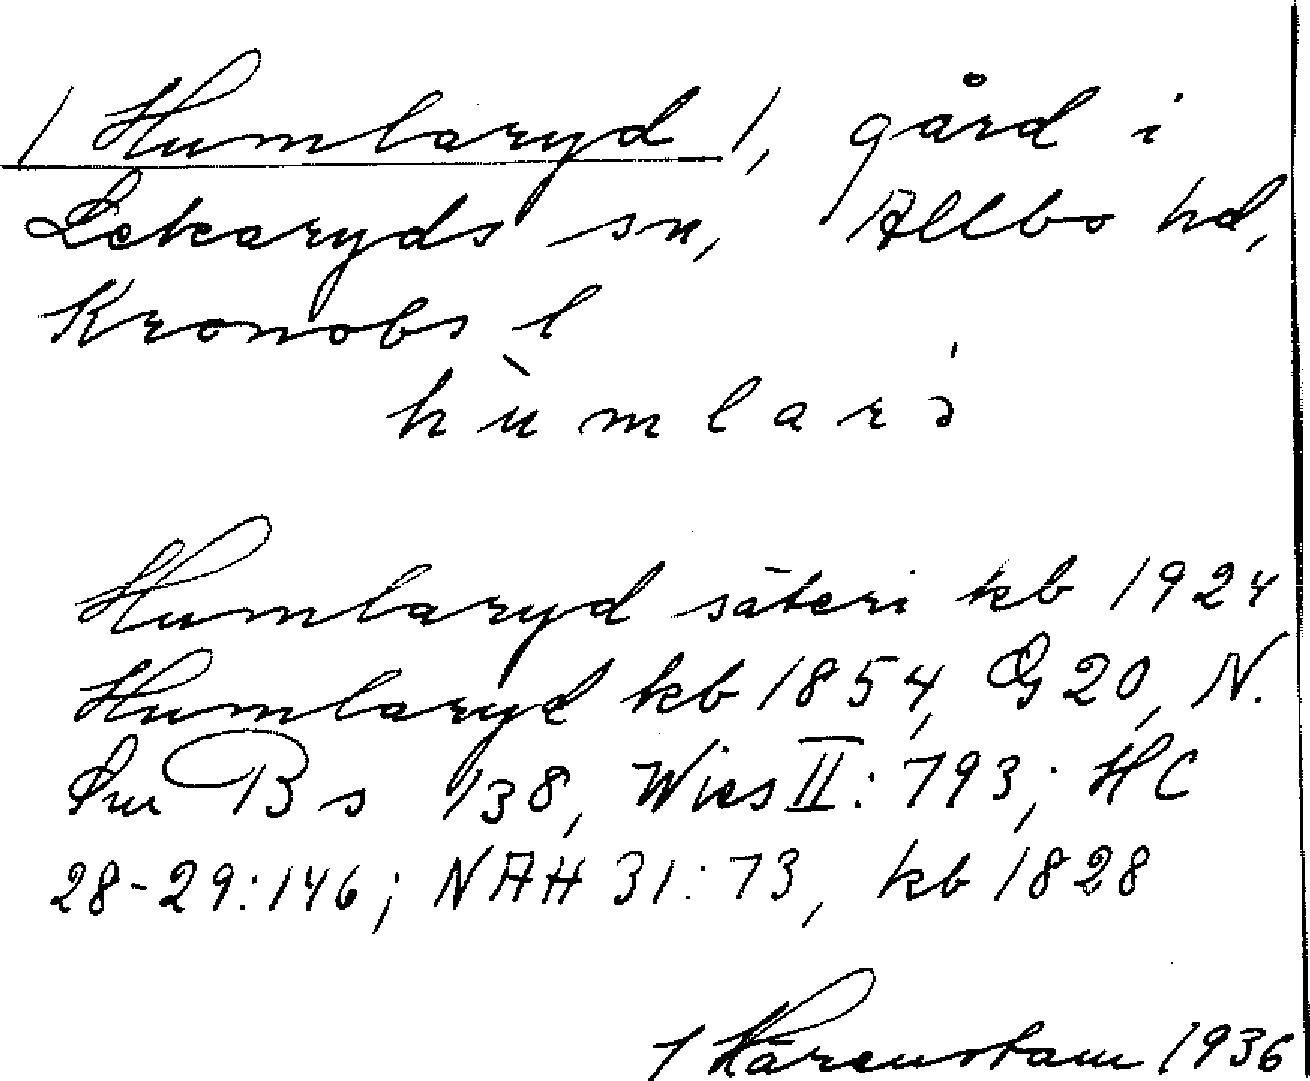 / Humlaryd /, gård i
Lekaryds sn, Allbo hd,
Kronobs l
hùmlarˈə
Humlaryd säteri kb 1924
Humlaryd kb 1854, G 20, N.
Sm B s 138, Wies II: 793; HC
28-29:146; NAH 31:73, kb 1828
Härenstam 1936